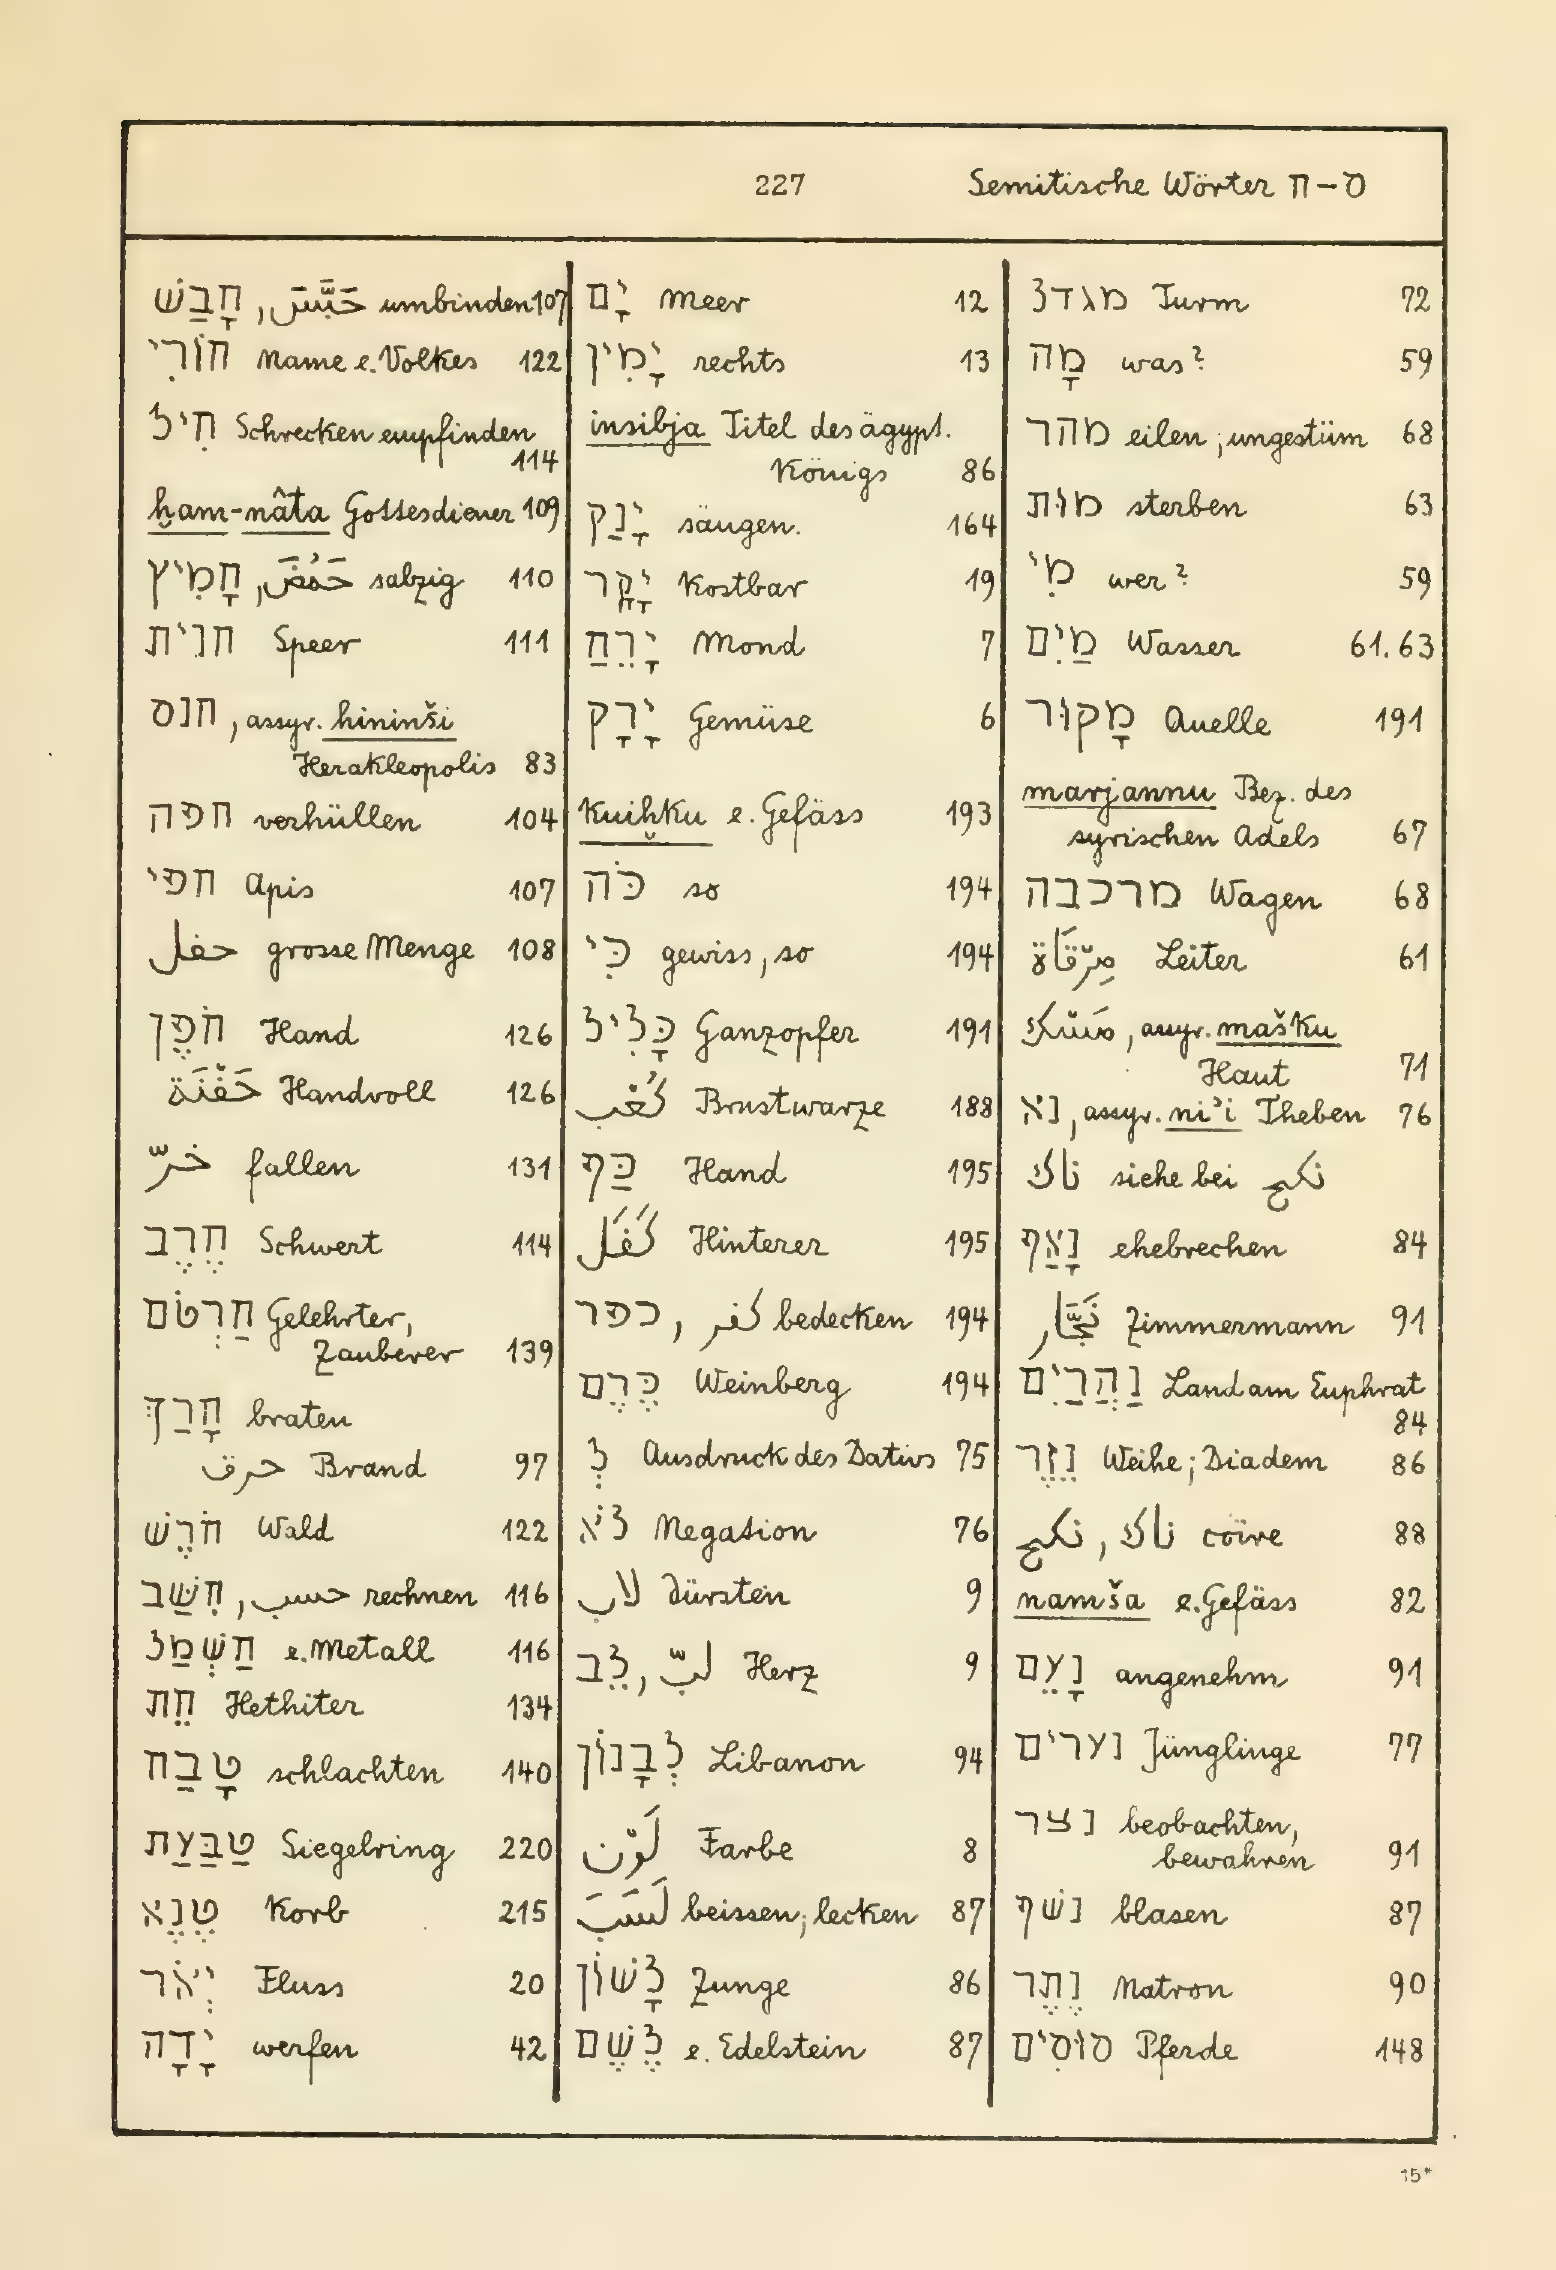 227
Semitische Wörter ח–ס
חָבַשׁ, حَبَّسَ umbinden 107
חוֹרִי Name e. Volkes 122
חִיל Schrecken empfinden
114
ḫam-nâta Gottesdiener 109
חָמִיץ, حَمُضَ salzig 110
חנית Speer 111
חנס, assyr. hininši
Herakleopolis 83
חפה verhüllen 104
חפי Apis 107
حفل grosse Menge 108
חֹפֶן Hand 126
حَفْنَة Handvoll 126
خرّ fallen 131
חֶרֶב Schwert 114
חַרְטֹם Gelehrter,
Zauberer 139
חָרַךְ braten
حرق Brand 97
חֹרֶשׁ Wald 122
חִשַּׁב, حسب rechnen 116
חַשְׁמַל e. Metall 116
חֵת Hethiter 134
טָבַח schlachten 140
טַבַּעַת Siegelring 220
טֶנֶא Korb 215
יְאֹר Fluss 20
יָדָה werfen 42
יָם Meer 12
יָמִין rechts 13
insibja Titel des ägypt.
Königs 86
יָנַק säugen. 164
יָקָר Kostbar 19
יָרֵחַ Mond 7
יָרָק Gemüse 6
kuiḫku e. Gefäss 193
כֹּה so 194
כִּי gewiss, so 194
כָּלִיל Ganzopfer 191
كُعْب Brustwarze 188
כַּף Hand 195
كَفَل Hinterer 195
כפר, كفر bedecken 194
כֶּרֶם Weinberg 194
לְ Ausdruck des Dativs 75
לֹא Negation 76
لاب dürsten 9
לֵב, لبّ Herz 9
לְבָנוֹן Libanon 94
لَوْن Farbe 8
لَسَبَ beissen; lecken 87
לָשׁוֹן Zunge 86
לֶשֶׁם e. Edelstein 87
מגדל Turm 72
מָה was? 59
מהר eilen; ungestüm 68
מוּת sterben 63
מִי wer? 59
מַיִם Wasser 61. 63
מָקוּר Quelle 191
marjannu Bez. des
syrischen Adels 67
מרכבה Wagen 68
مِرْقَاة Leiter 61
مَسْك, assyr. mašku
Haut 71
נא, assyr. ni'i Theben 76
ناك siehe bei نكح
נָאַף ehebrechen 84
نَجَّار Zimmermann 91
נַהֲרַיִם Land am Euphrat
84
נֵזֶר Weihe; Diadem 86
نكح, ناك coïre 88
namša e. Gefäss 82
נָעֵם angenehm 91
נערים Jünglinge 77
נצר beobachten,
bewahren 91
נשׁף blasen 87
נֶתֶר Natron 90
סוּסִים Pferde 148
15*